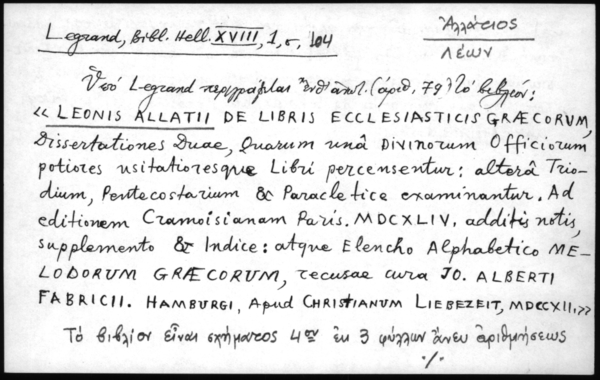 Ἀλλάτιος
Λέων
Legrand, Bibl. Hell. XVIII, 1, σ, 104
Ὑπό Legrand περιγράφεται (ἀριθ. 79) τό βιβλίον:
« LEONIS ALLATII DE LIBRIS ECCLESIASTICIS GRÆCORUM,
Dissertationes Duae, Quarum unâ Divinorum Officiorum
potiores usitatioresque Libri percensentur: alterâ Trio-
dium, Pentecostarium & Paracletice examinantur. Ad
editionem Cramoisianam Paris. MDCXLIV. additis notis,
supplemento & Indice: atque Elencho Alphabetico ME-
LODORUM GRÆCORUM, recusae cura JO. ALBERTI
FABRICII. HAMBURGI, Apud CHRISTIANUM LIEBEZEIT, MDCCXII.»
Τό βιβλίον εἶναι σχήματος 4ον ἐκ 3 φύλλων ἄνευ ἀριθμήσεως
./.